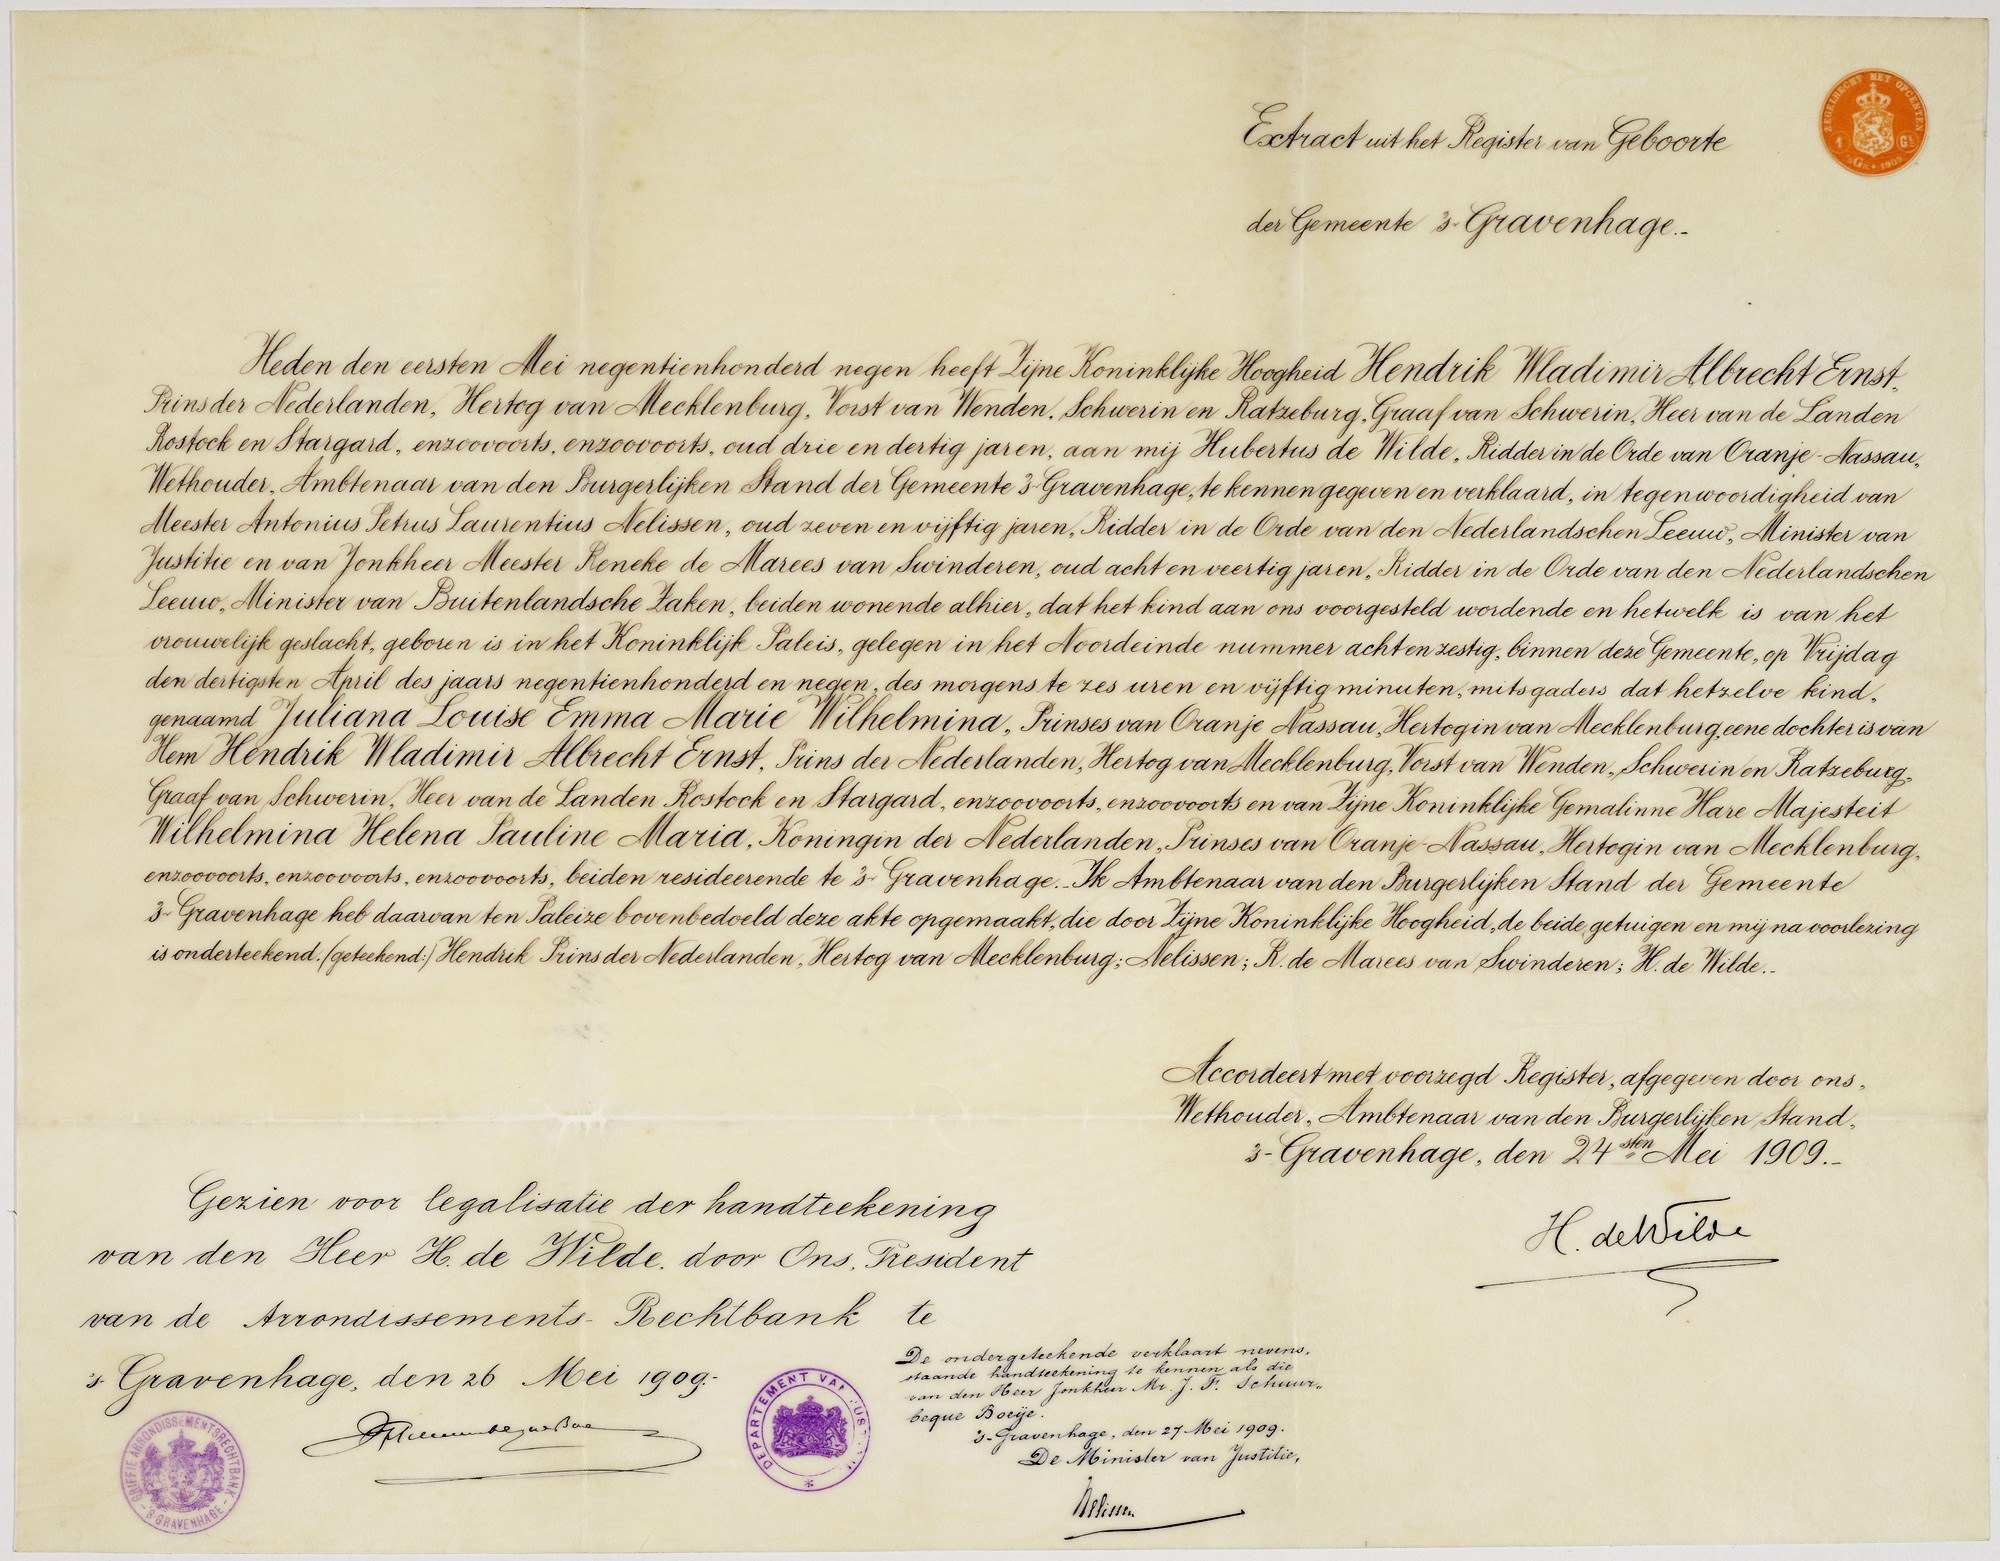 Extract uit het Register van Geboorte
der Gemeente 's-Gravenhage.-
ZEGELRECHT MET OPCENTEN
Heden den eersten Mei negentienhonderd negen heeft Zijne Koninklijke Hoogheid Hendrik Wladimir Albrecht Ernst,
Prins der Nederlanden, Hertog van Mecklenburg, Vorst van Wenden, Schwerin en Ratzeburg, Graaf van Schwerin, Heer van de Landen
Rostock en Stargard, enzoovoorts, enzoovoorts, oud drie en dertig jaren, aan mij Hubertus de Wilde, Ridder in de Orde van Oranje-Nassau,
Wethouder, Ambtenaar van den Burgerlijken Stand der Gemeente 's-Gravenhage, te kennen gegeven en verklaard, in tegenwoordigheid van
Meester Antonius Petrus Laurentius Nelissen, oud zeven en vijftig jaren, Ridder in de Orde van den Nederlandschen Leeuw, Minister van
Justitie en van Jonkheer Meester Reneke de Marees van Swinderen, oud acht en veertig jaren, Ridder in de Orde van den Nederlandschen
Leeuw, Minister van Buitenlandsche Zaken, beiden wonende alhier, dat het kind aan ons voorgesteld wordende en hetwelk is van het
vrouwelijk geslacht, geboren is in het Koninklijk Paleis, gelegen in het Noordeinde nummer acht en zestig, binnen deze Gemeente, op Vrijdag
den dertigsten April des jaars negentienhonderd en negen, des morgens te zes uren en vijftig minuten, mitsgaders dat hetzelve kind,
genaamd Juliana Louise Emma Marie Wilhelmina, Prinses van Oranje Nassau, Hertogin van Mecklenburg, eene dochter is van
Hem Hendrik Wladimir Albrecht Ernst, Prins der Nederlanden, Hertog van Mecklenburg, Vorst van Wenden, Schwerin en Ratzeburg,
Graaf van Schwerin, Heer van de Landen Rostock en Stargard, enzoovoorts, enzoovoorts en van Zijne Koninklijke Gemalinne Hare Majesteit
Wilhelmina Helena Pauline Maria, Koningin der Nederlanden, Prinses van Oranje-Nassau, Hertogin van Mecklenburg,
enzoovoorts, enzoovoorts, enzoovoorts, beiden resideerende te 's-Gravenhage.- Ik Ambtenaar van den Burgerlijken Stand der Gemeente
's-Gravenhage heb daarvan ten Paleize bovenbedoeld deze akte opgemaakt, die door Zijne Koninklijke Hoogheid, de beide getuigen en mij na voorlezing
is onderteekend. /geteekend:/ Hendrik Prins der Nederlanden, Hertog van Mecklenburg; Nelissen; R. de Marees van Swinderen; H. de Wilde.-
Accordeert met voorzegd Register, afgegeven door ons,
Wethouder, Ambtenaar van den Burgerlijken Stand,
's-Gravenhage, den 24sten Mei 1909.-
H. de Wilde
Gezien voor legalisatie der handteekening
van den Heer H. de Wilde, door Ons, President
van de Arrondissements-Rechtbank te
's Gravenhage, den 26 Mei 1909.-
GRIFFIE ARRONDISSEMENTSRECHTBANK
'S GRAVENHAGE
DEPARTEMENT VAN
De ondergeteekende verklaart nevens-
staande handteekening te kennen als die
van den Heer Jonkheer Mr. J. F. Schuur-
beque Boeije.
's-Gravenhage, den 27 Mei 1909.
De Minister van Justitie,
Nelissen